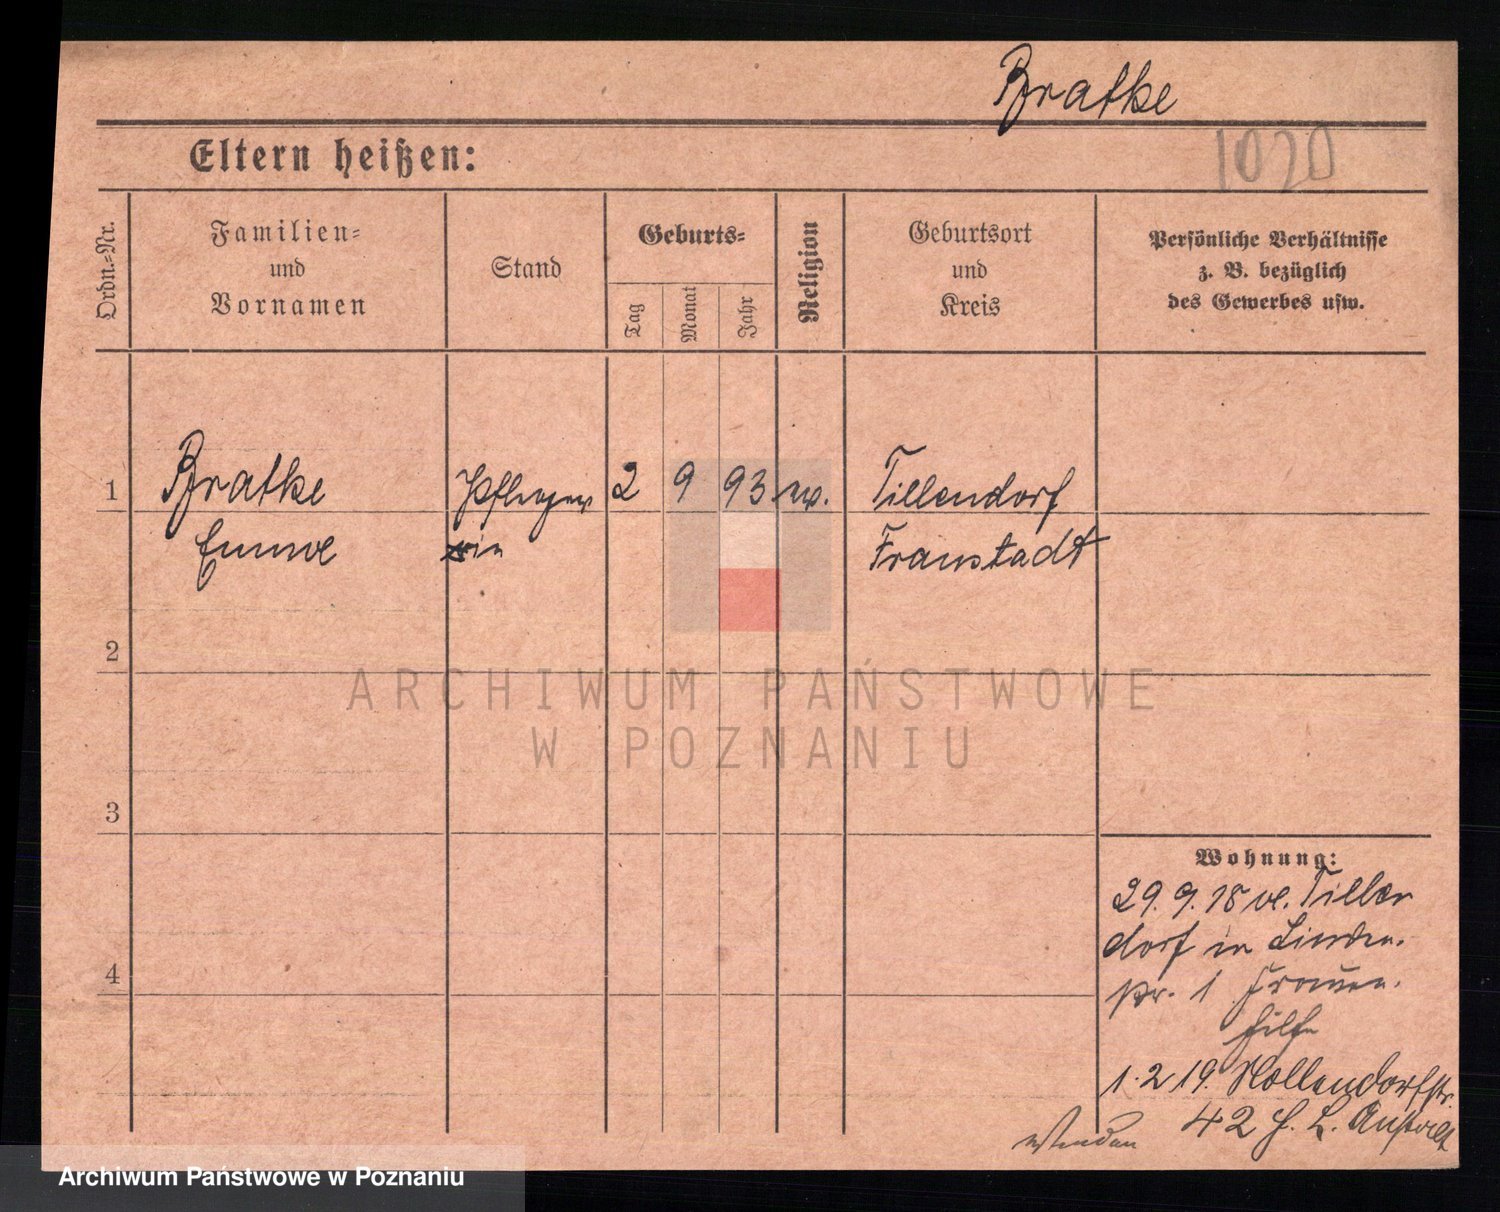 Bratke
1020
Eltern heißen:
Ordn.=Nr.
Familien=
und
Vornamen
Stand
Geburts=
Tag
Monat
Jahr
Religion
Geburtsort
und
Kreis
Persönliche Verhältnisse
z. B. bezüglich
des Gewerbes usw.
1
Bratke Pfleger 2 9 93 ev. Tillendorf
Emma in Fraustadt
2
3
4
Wohnung:
29. 9. 18 v. Tillen
dorf in Linden.
str. 1 Frauen.
hilfe
1. 2 19. Nollendorfstr.
42 H. L. Anstalt
wenden
ARCHIWUM PAŃSTWOWE
W POZNANIU
Archiwum Państwowe w Poznaniu